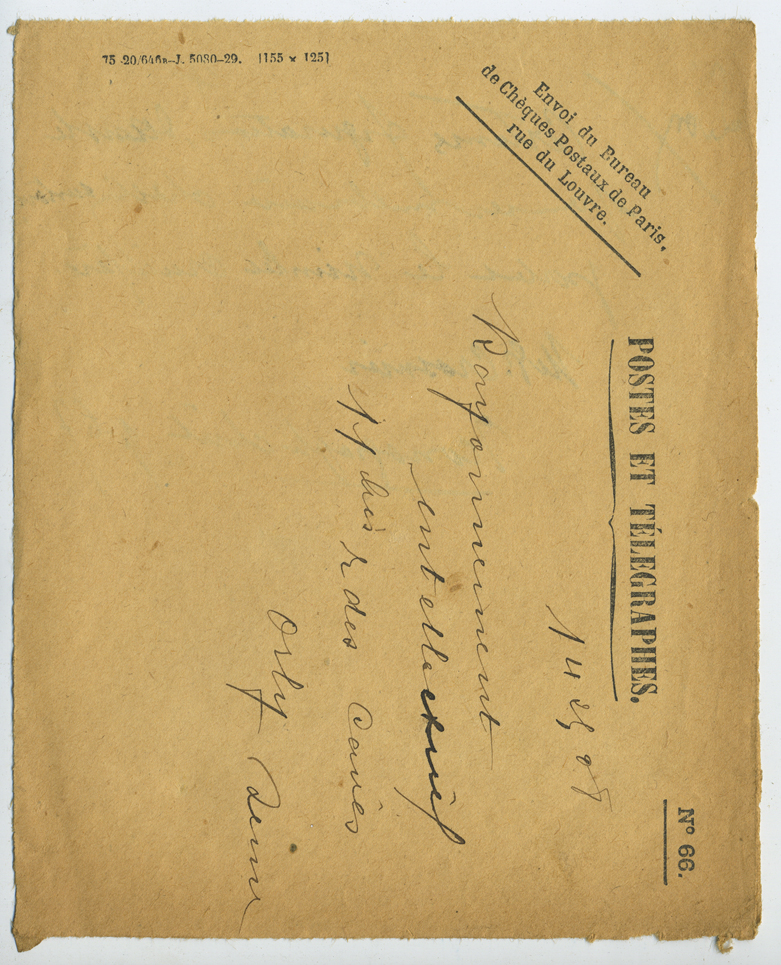 75-20/646B–J. 5080–29. [155 × 125]
Envoi du Bureau
de Chèques Postaux de Paris,
rue du Louvre.
POSTES ET TÉLÉGRAPHES.
N° 66.
Rayonnement
intellectuel
11 bis r des Caves
Orly Seine